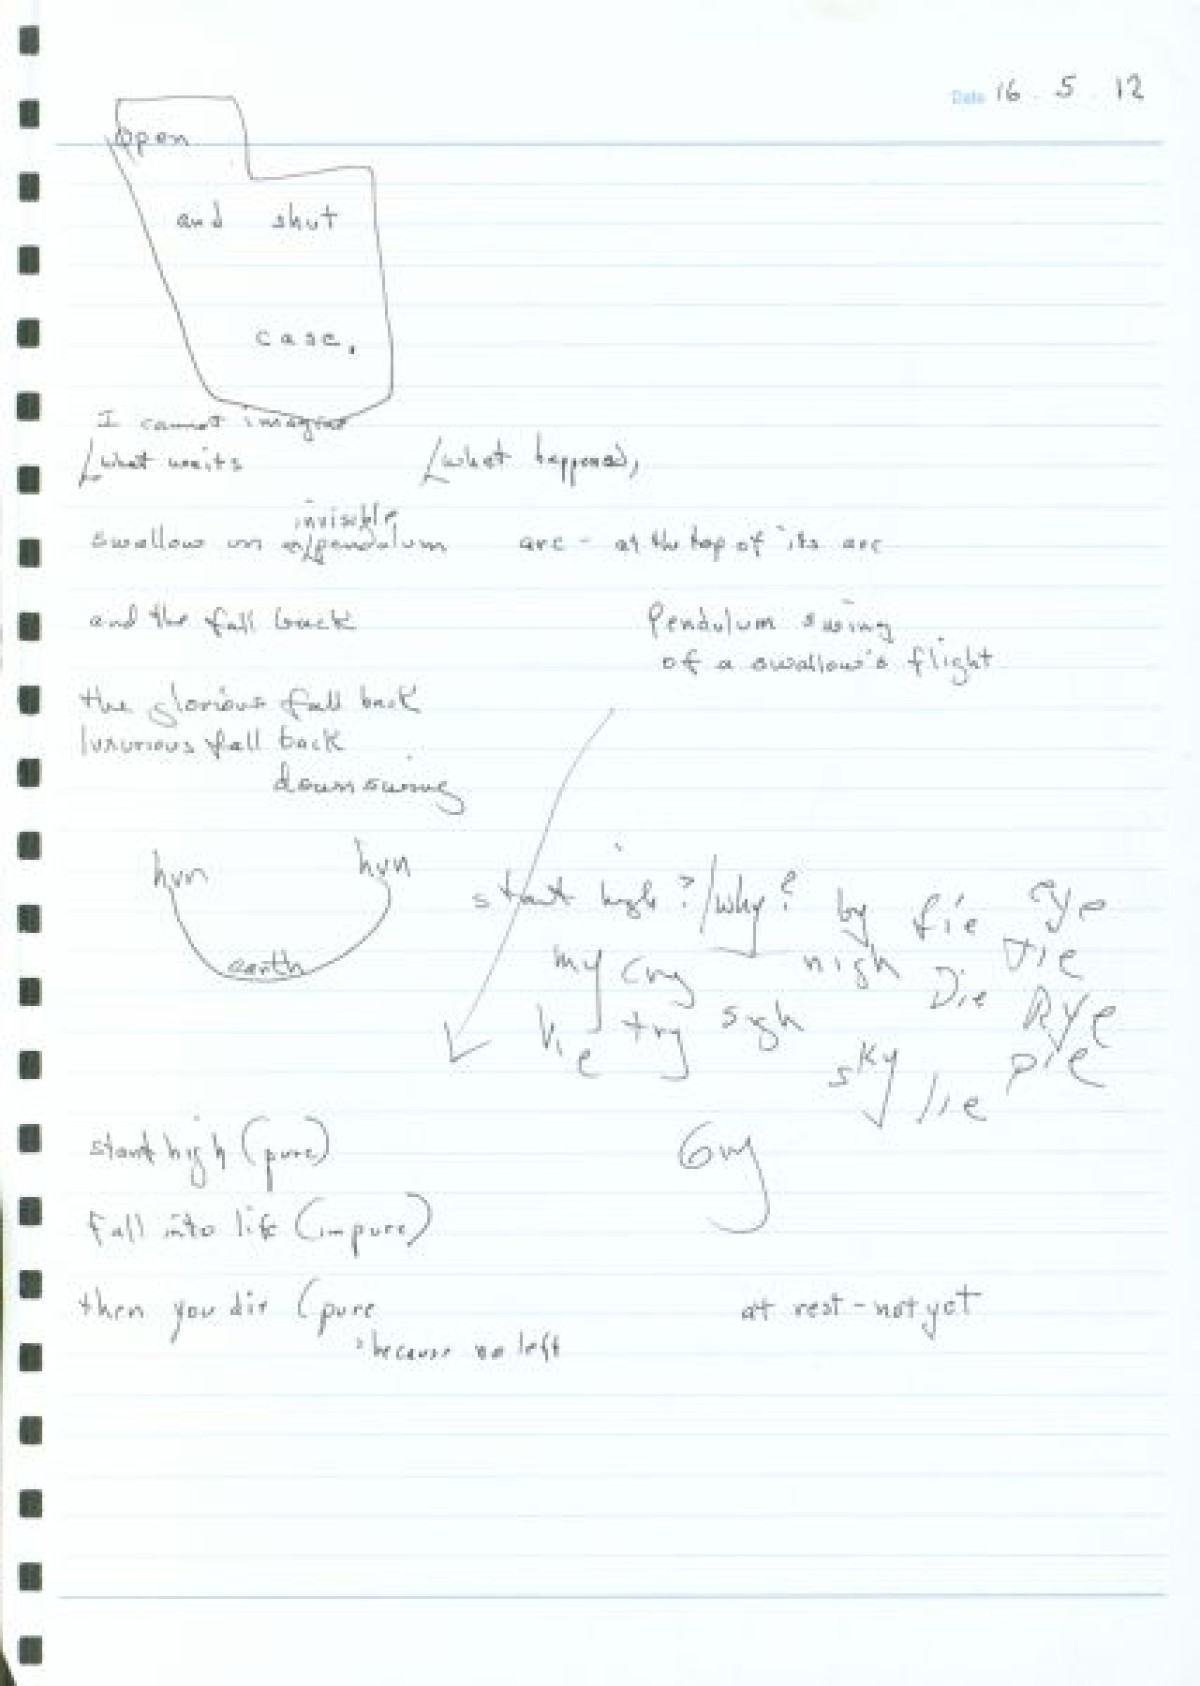 Date 16 . 5 . 12
open
and shut
case.
I cannot imagine
what waits [what happened,
invisible
swallow on a/pendulum arc - at the top of its arc
and the fall back
Pendulum swing
of a swallow's flight
the glorious fall back
luxurious fall back
downswing
hvn hvn
earth
start high ?/why? by fie eye
my cry nigh tie
Die Rye
Vie try sigh
sky lie pie
start high (pure)
Guy
fall into life (impure)
then you die (pure at rest - not yet
because no left